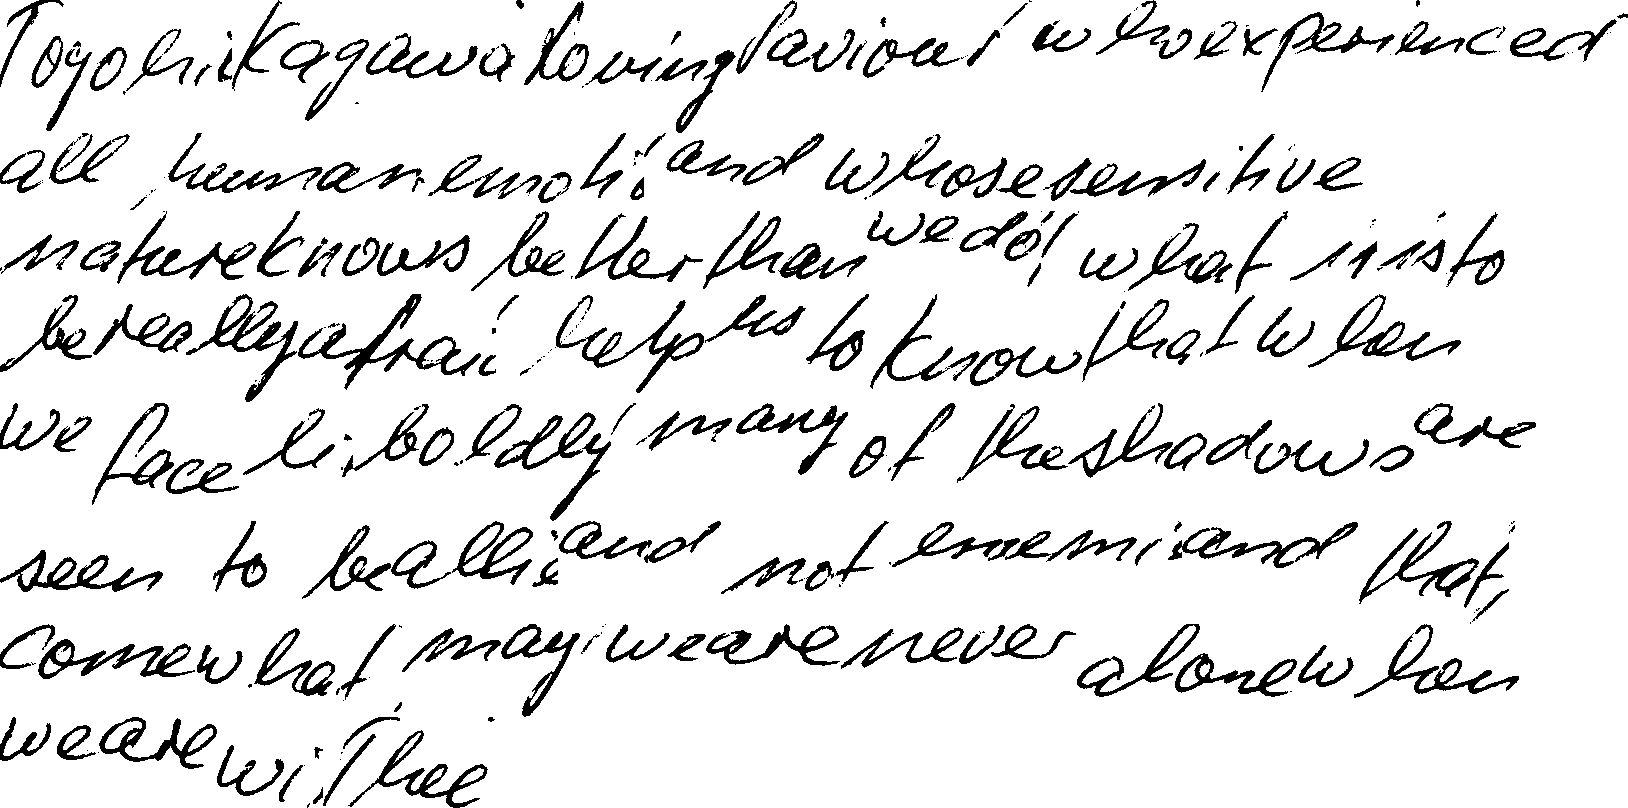 Toyohik Kagawa Loving Saviour who experienced
all human emoti. and whose sensitive
nature knows better than we do! what it is to
be really afrai help us to know that when
we face li. boldly many of the shadows are
seen to be allie and not enemi. and that,
come what may, we are never alone when
we are wi. Thee